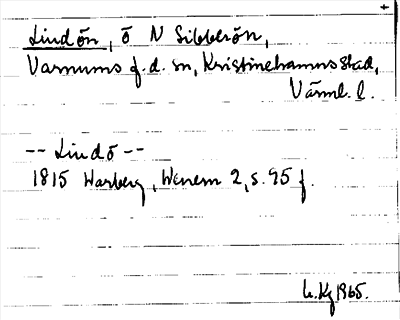 +
Lindön, ö N Sibberön,
Varnums f.d. sn, Kristinehamns stad,
Värml. l.
-- Lindö --
1815 Warberg, Wenern 2, s. 95 f.
1965.